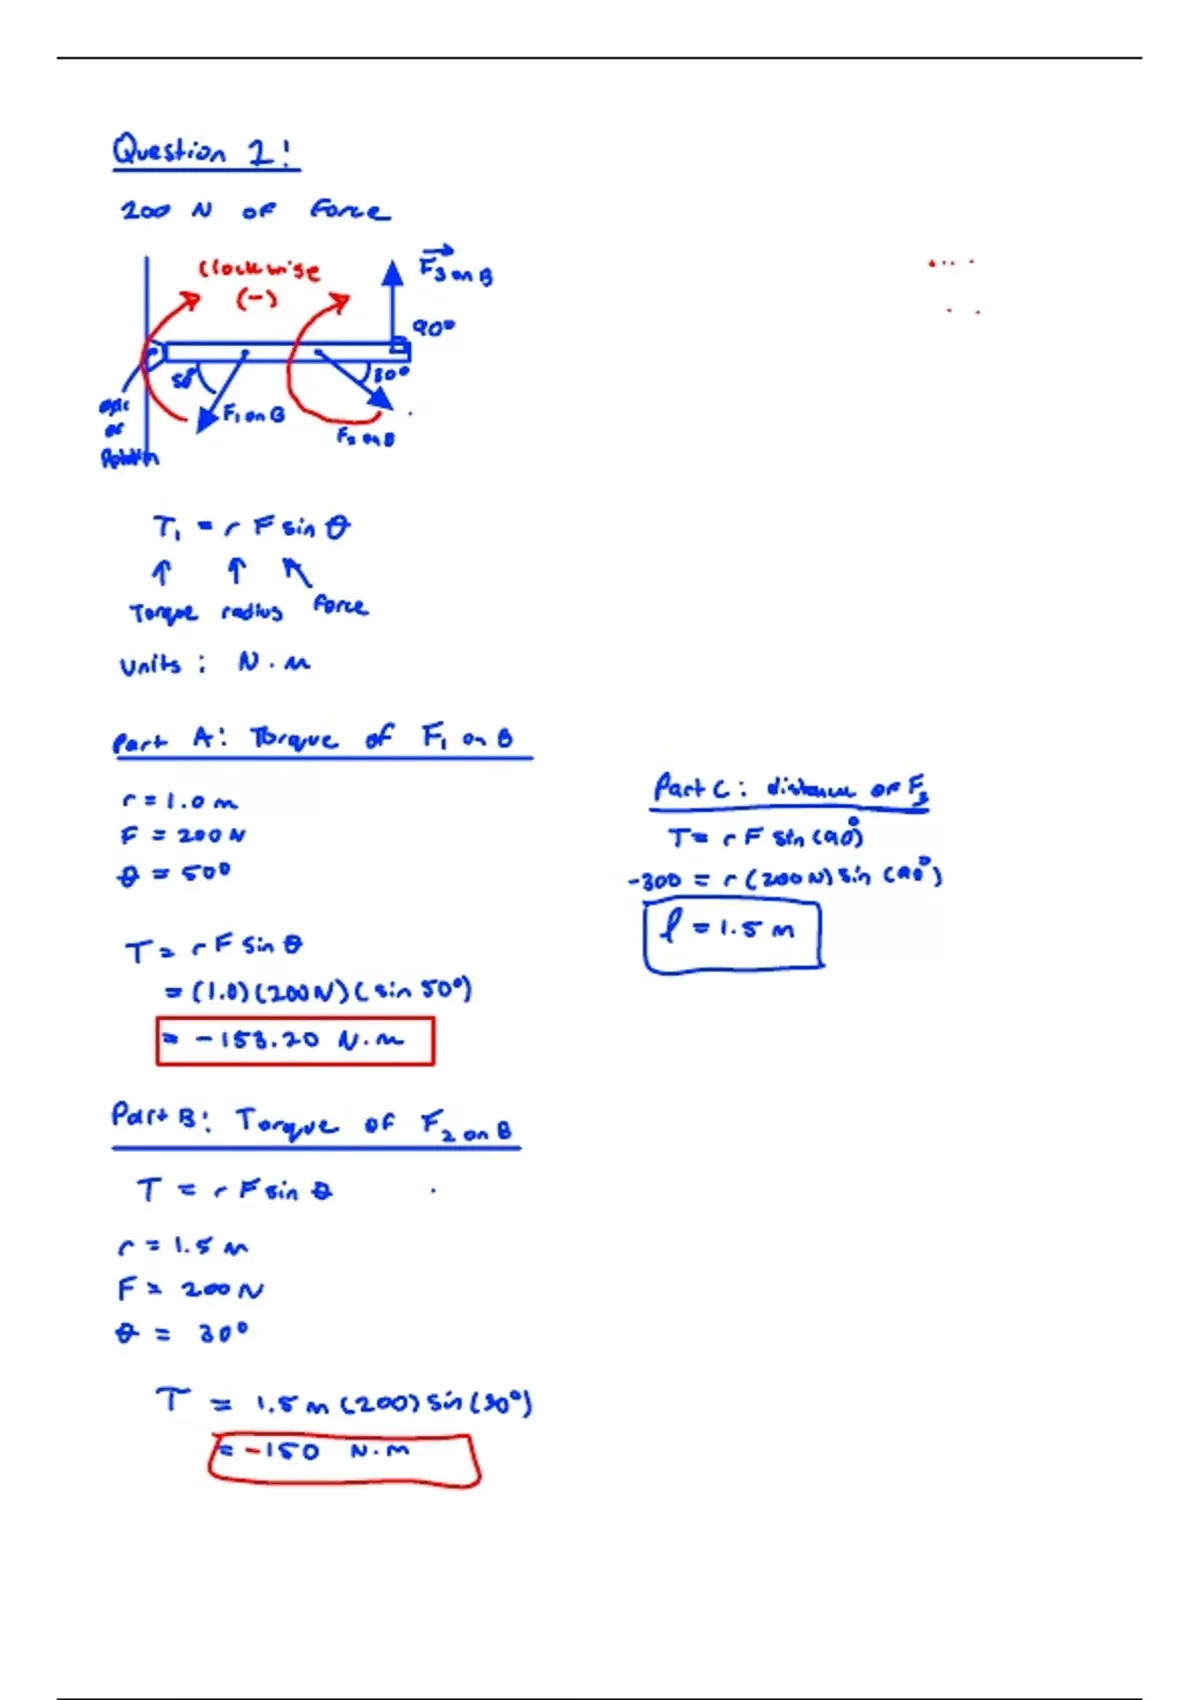 Question 1!
200 N of force
clockwise
(-)
F3 on B
90°
50°
30°
F1 on B
F2 on B
axis
of
Rotation
T1 = r F sin θ
Torque radius force
Units : N·m
Part A: Torque of F1 on B
r = 1.0 m
F = 200 N
θ = 50°
T = r F sin θ
= (1.0)(200N)(sin 50°)
= -153.20 N·m
Part B: Torque of F2 on B
T = r F sin θ
r = 1.5 m
F = 200 N
θ = 30°
T = 1.5 m (200) sin (30°)
= -150 N·m
Part C: distance of F3
T = r F sin (90°)
-300 = r (200 N) sin (90°)
l = 1.5 m